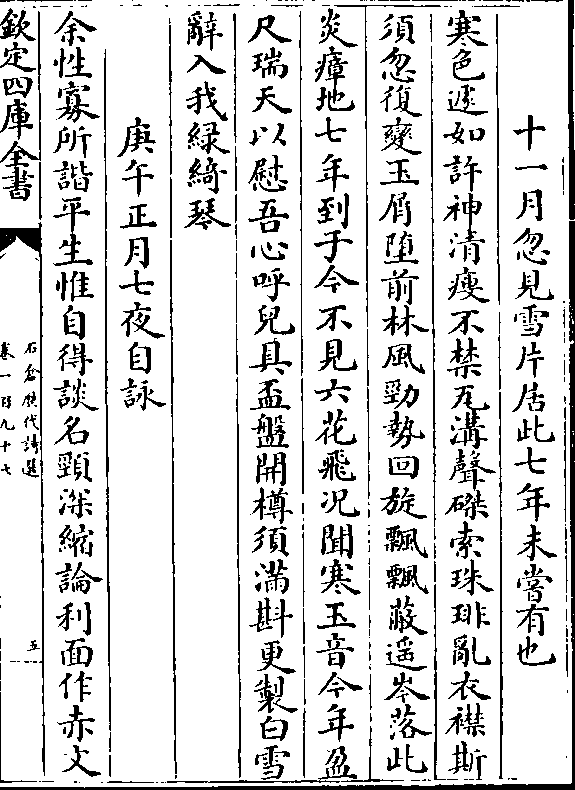 十一月忽見雪片居此七年未嘗有也
寒色遽如許神清瘦不禁瓦溝聲磔索珠琲亂衣襟斯
須忽復變玉屑墮前林風勁勢回旋飄飄蔽遥岑落此
炎瘴地七年到于今不見六花飛况聞寒玉音今年盈
尺瑞天以慰吾心呼兒具盃盤開樽須滿斟更製白雪
辭入我緑綺琴
庚午正月七夜自詠
余性寡所諧平生惟自得談名頸深縮論利面作赤文
欽定四庫全書
石倉歴代詩選
卷一百九十七
五